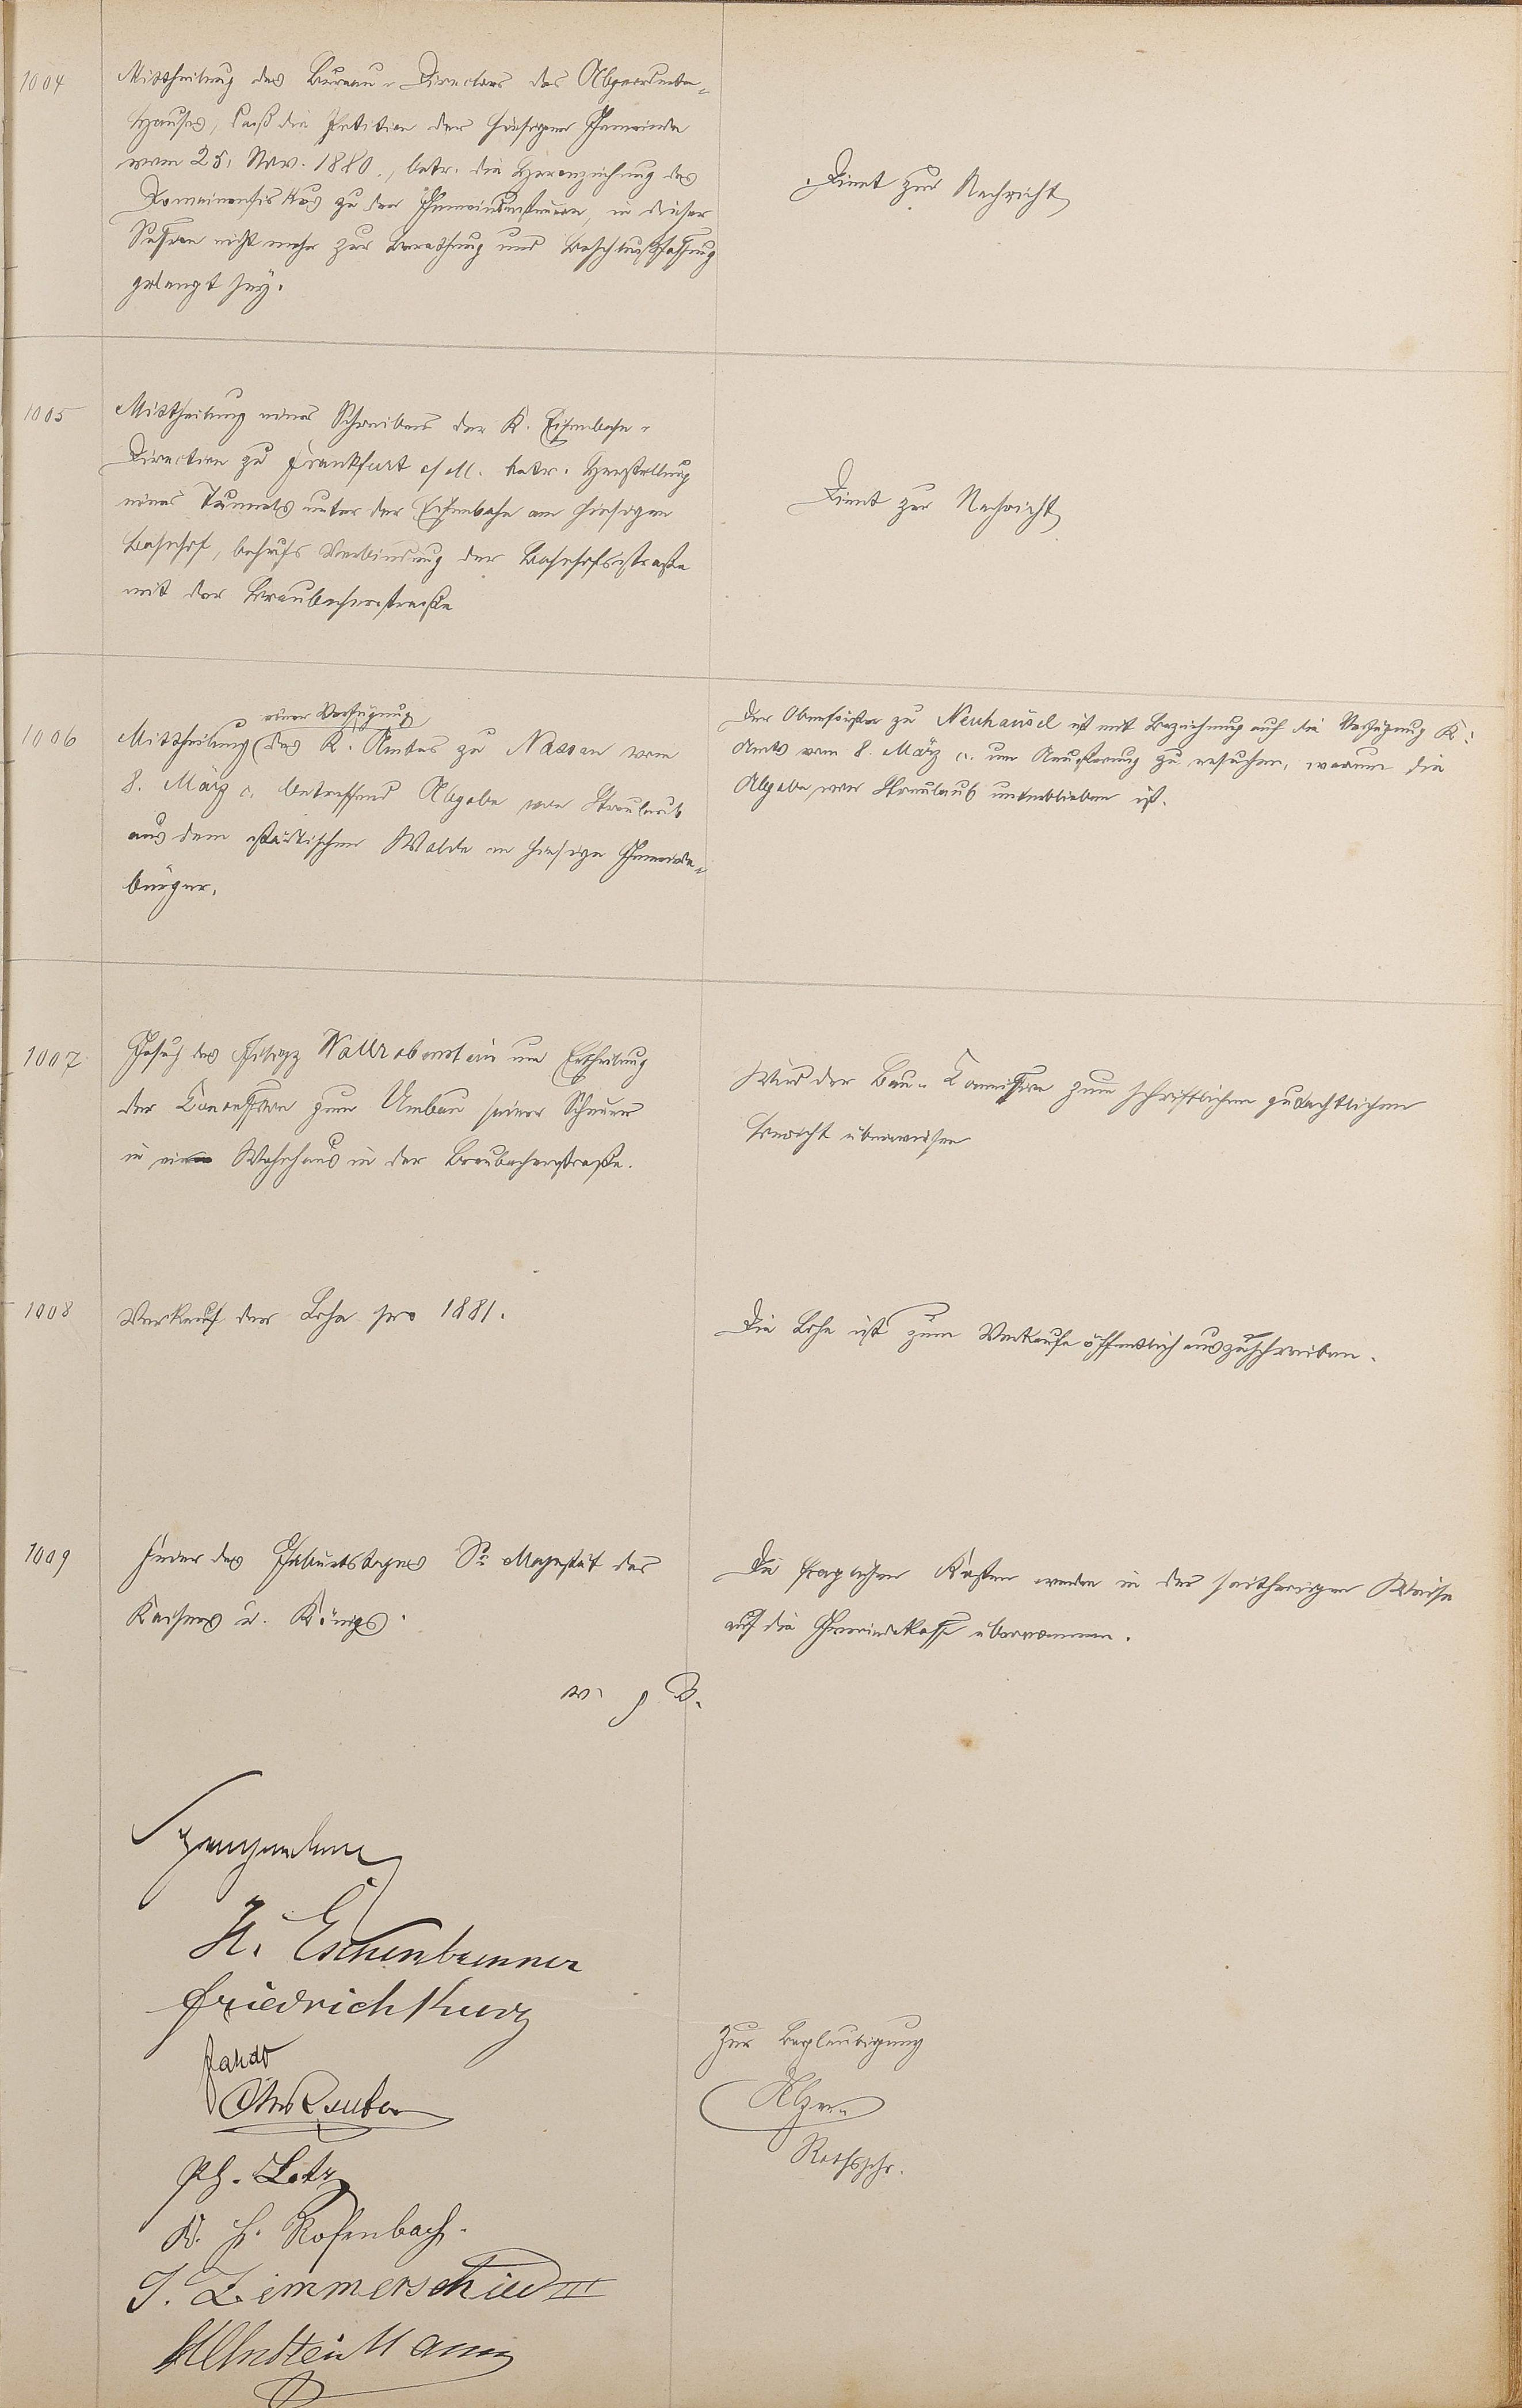 1004
Mittheilung des Bureau-Directors des Abgeordneten-
Hauses, daß die Petition der hiesigen Gemeinde
vom 25. Nov. 1880., betr. die Heranziehung des
Domainenfiskus zu den Gemeindesteuern, in dieser
Session nicht mehr zur Berathung und Beschlußfassung
gelangt sey.
Dient zur Nachricht
1005
Mittheilung eines Schreibens der K. Eisenbahn-
Direction zu Frankfurt a/M. betr. Herstellung
eines Tunnels unter der Eisenbahn am hiesigen
Bahnhof, behufs Verbindung der Bahnhofsstraße
mit der Braubacherstraße
Dient zur Nachricht
1006
einer Verfügung
Mittheilung (des K. Amtes zu Nassau vom
8. März c. betreffend Abgabe von Streulaub
aus dem städtischen Walde an hiesige Gemeinde-
bürger.
Der Oberförster zu Neuhäusel ist mit Beziehung auf die Verfügung K.
Amts vom 8. März c. um Aeußerung zu ersuchen, warum die
Abgabe von Streulaub unterblieben ist.
1007
Gesuch des Philipp Wallrabenstein um Ertheilung
der Concession zum Umbau seiner Scheuer
in ein Wohnhaus in der Braubacherstraße.
Wird der Bau-Comission zum schriftlichen gutachtlichen
Bericht überwiesen
1008
Verkauf der Lohe pro 1881.
Die Lohe ist zum Verkaufe öffentlich auszuschreiben.
1009
Feier des Geburtstages Sr Majestät des
Kaisers u. Königs.
Die fraglichen Kosten werden in der seitherigen Weise
auf die Gemeindekasse übernommen.
v. g. u.
H. Eschenbrenner
Friedrich Kurz
Ph. Lotz
K. H. Rosenbach.
J. Zimmerschied III
Zur Beglaubigung
Rathsschr.